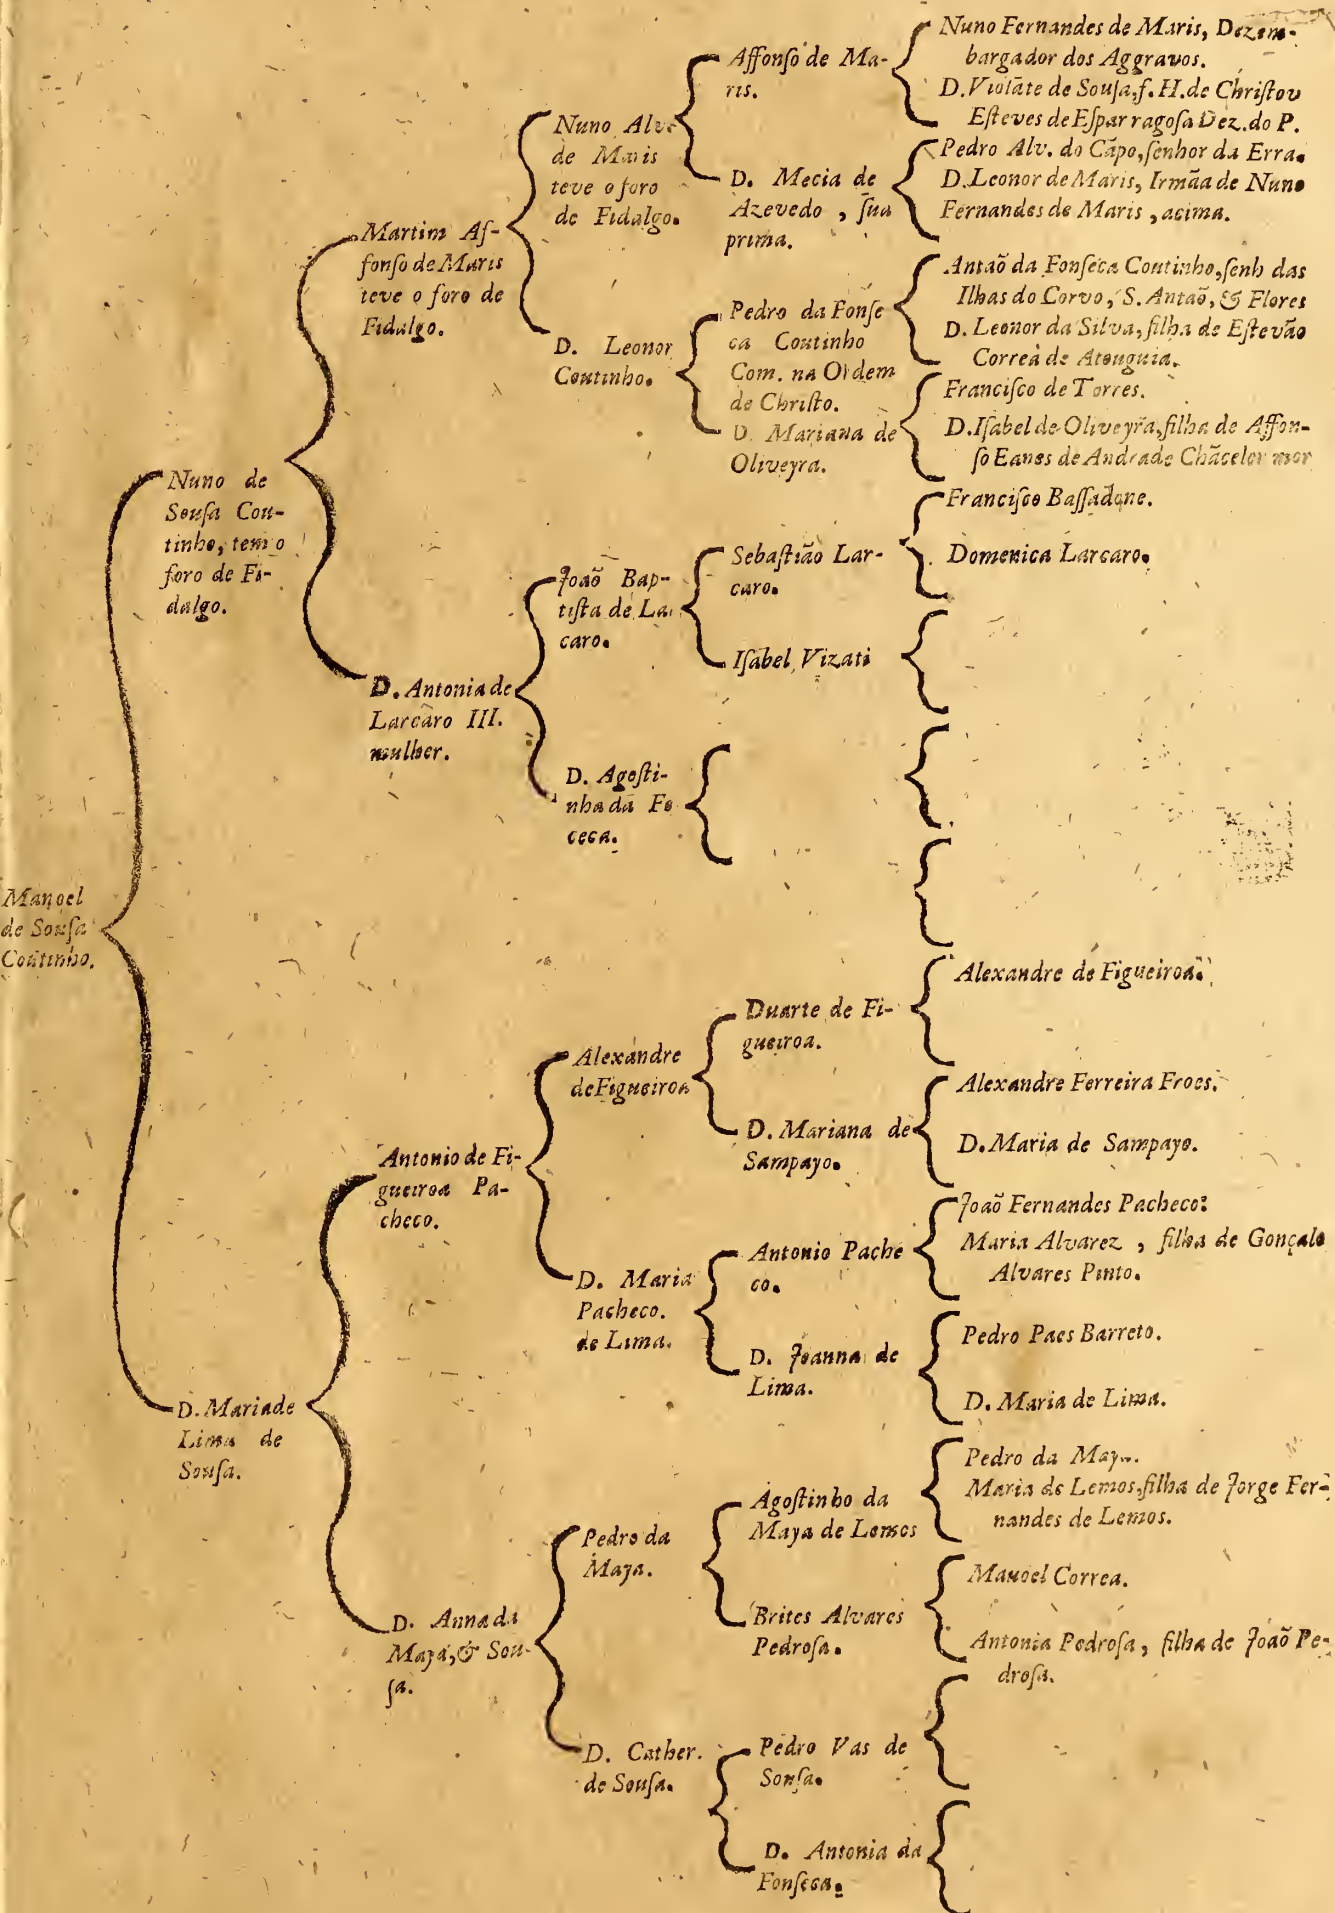 Manoel
de Souſa
Coutinho.
Nuno de
Souſa Cou-
tinho, tem o
foro de Fi-
dalgo.
D. Maria de
Lima de
Souſa.
Martim Af-
fonſo de Maris
teve o foro de
Fidalgo.
D. Antonia de
Larcaro III.
mulher.
Antonio de Fi-
gueiroa Pa-
checo.
D. Anna da
Maya, & Sou-
ſa.
Nuno Alv.
de Maris
teve o foro
de Fidalgo.
D. Leonor
Coutinho.
Joaõ Bap-
tiſta de La
caro.
D. Agoſti-
nha da Fo
ceca.
Alexandre
de Figueiroa
D. Maria
Pacheco.
de Lima.
Pedro da
Maya.
D. Cather.
de Souſa.
Affonſo de Ma-
ris.
D. Mecia de
Azevedo, ſua
prima.
Pedro da Fonſe
ca Coutinho
Com. na Ordem
de Chriſto.
D. Mariana de
Oliveyra.
Sebaſtião Lar-
caro.
Iſabel Vizati
Duarte de Fi-
gueiroa.
D. Mariana de
Sampayo.
Antonio Pache
co.
D. Joanna de
Lima.
Agoſtinho da
Maya de Lemos
Brites Alvares
Pedroſa.
Pedro Vas de
Souſa.
D. Antonia da
Fonſeca.
Nuno Fernandes de Maris, Dezem-
bargador dos Aggravos.
D. Violãte de Souſa, f. H. de Chriſtov
Eſteves de Eſparragoſa Dez. do P.
Pedro Alv. do Cãpo, ſenhor da Erra.
D. Leonor de Maris, Irmãa de Nuno
Fernandes de Maris, acima.
Antaõ da Fonſeca Coutinho, ſenh das
Ilhas do Corvo, S. Antaõ, & Flores
D. Leonor da Silva, filha de Eſtevão
Correa de Atouguia.
Franciſco de Torres.
D. Iſabel de Oliveyra, filha de Affon-
ſo Eanes de Andrade Chãceler mor
Franciſco Baſſadone.
Domenica Larcaro.
Alexandre de Figueiroa.
Alexandre Ferreira Froes.
D. Maria de Sampayo.
Joaõ Fernandes Pacheco:
Maria Alvarez, filha de Gonçalo
Alvares Pinto.
Pedro Paes Barreto.
D. Maria de Lima.
Pedro da Maya.
Maria de Lemos, filha de Jorge Fer-
nandes de Lemos.
Manoel Correa.
Antonia Pedroſa, filha de Joaõ Pe-
droſa.